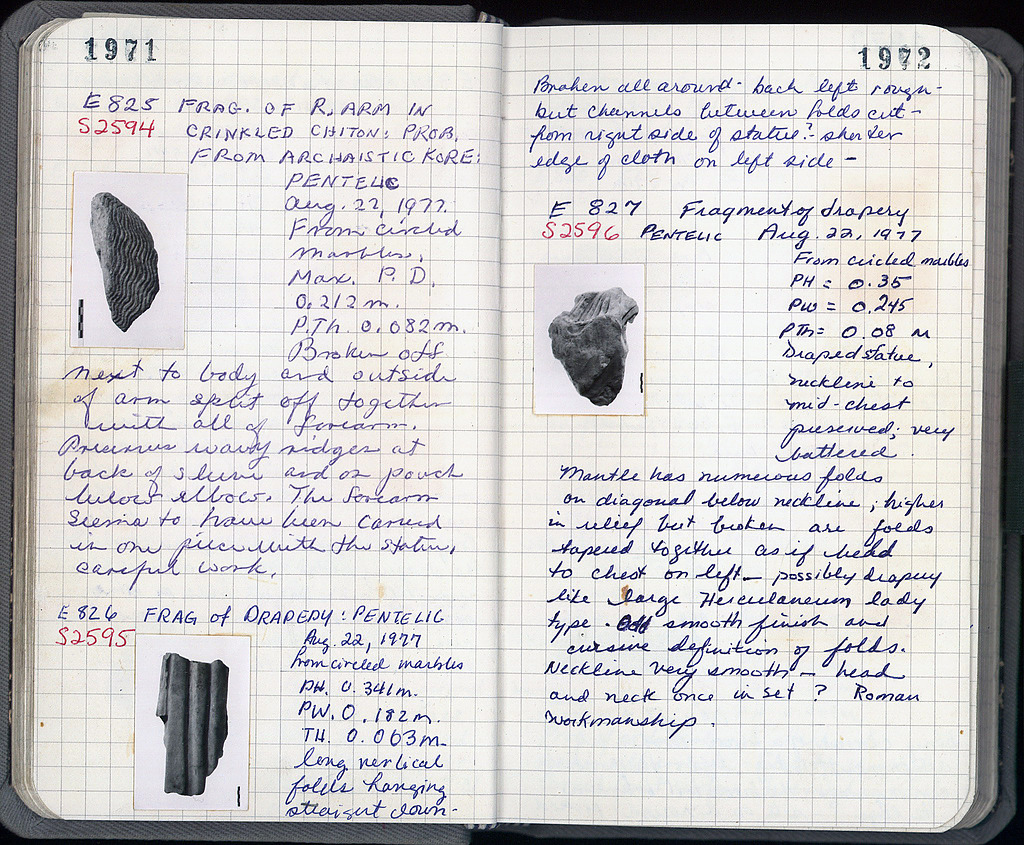 1971
E 825 FRAG. OF R. ARM IN
S2594 CRINKLED CHITON: PROB.
FROM ARCHAISTIC KORE:
PENTELIC
Aug. 22, 1977.
From circled
marbles.
Max. P. D.
0.212 m.
P.Th. 0.082 m.
Broken off
next to body and outside
of arm split off together
with all of forearm.
Precious wavy ridges at
back of sleeve and on pouch
below elbow. The forearm
seems to have been carved
in one piece with the statue.
careful work.
E 826 FRAG of DRAPEDY: PENTELIC
S2595 Aug. 22, 1977
from circled marbles
PH. 0.341 m.
PW. 0.182 m.
TH. 0.063 m.
long vertical
folds hanging
straight down-
1972
Broken all around- back left rough-
but channels between folds cut-
from right side of statue?- shorter
edge of cloth on left side -
E 827 Fragment of drapery
S2596 PENTELIC Aug. 22, 1977
From circled marbles
PH = 0.35
PW = 0.245
PTh = 0.08 m
Draped statue,
neckline to
mid-chest
preserved; very
battered.
Mantle has numerous folds
on diagonal below neckline; higher
in relief but broken are folds
tapered together as if held
to chest on left - possibly drapery
like large Herculaneum lady
type. smooth finish and
cursive definition of folds.
Neckline very smooth - head
and neck once in set? Roman
workmanship.